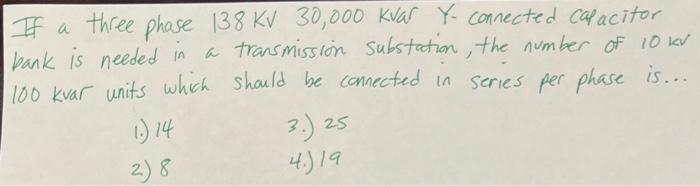 If a three phase 138 KV 30,000 Kvar Y-connected capacitor
bank is needed in a transmission substation, the number of 10 kv
100 kvar units which should be connected in series per phase is...
1.) 14 3.) 25
2) 8 4.) 19